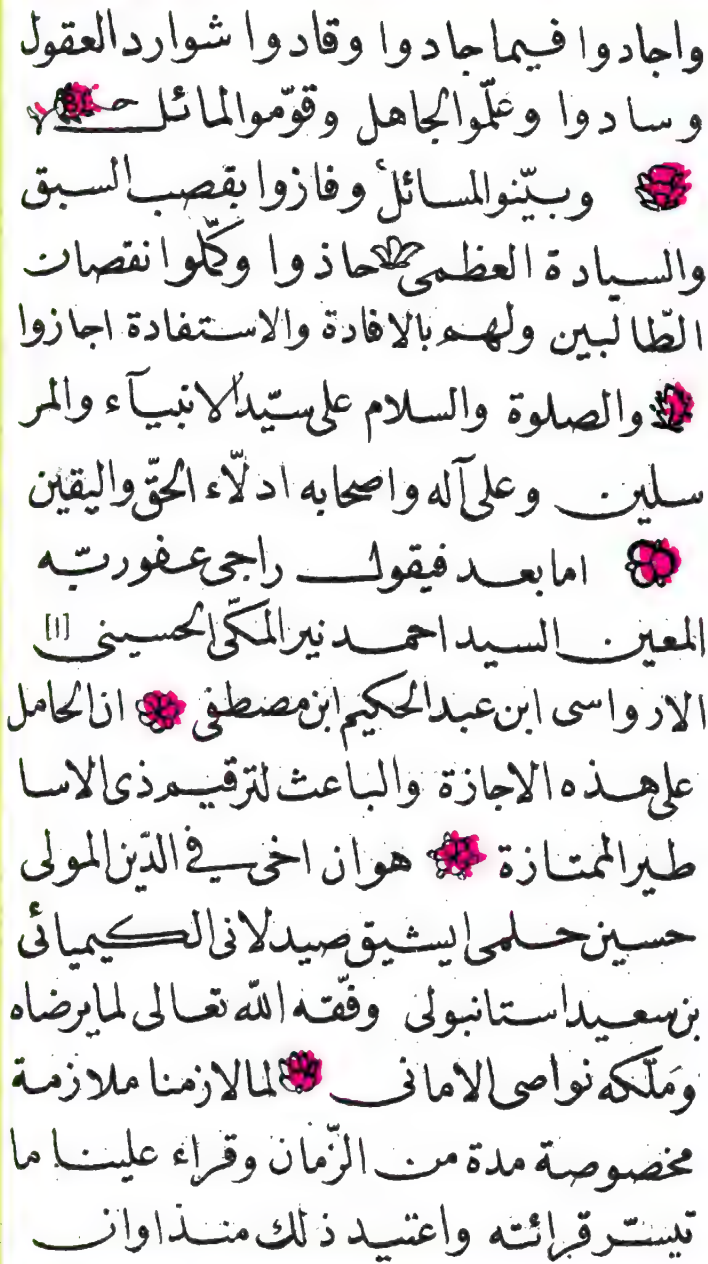 واجادوا فيما جادوا وقادوا شوارد العقول
وسادوا وعلّموا الجاهل وقوّموالمائل
وبيّنوالمسائل وفازوا بقصب السبق
والسيادة العظمى حاذوا وكمّلوا نقصان
الطّالبين ولهم بالافادة والاستفادة اجازوا
والصلوة والسلام على سيّدالانبيآء والمر
سلين وعلى آله واصحابه ادلّاء الحقّ واليقين
اما بعد فيقول راجى عفور ربّه
المعين السيد احمد نير المكّى الحسينى [١]
الارواسى ابن عبدالحكيم ابن مصطفى ان الحامل
على هذه الاجازة والباعث لترقيم ذى الاسا
طير الممتازة هوان اخى في الدّين المولى
حسين حلمى ايشيق صيدلانى الكيميائى
بن سعيد استانبولى وفّقه الله تعالى لما يرضاه
وَملّكه نواصى الامانى لما لازمنا ملازمة
مخصوصة مدة من الزّمان وقراء علينا ما
تيسّر قرائته واعتيد ذلك منذ اوان